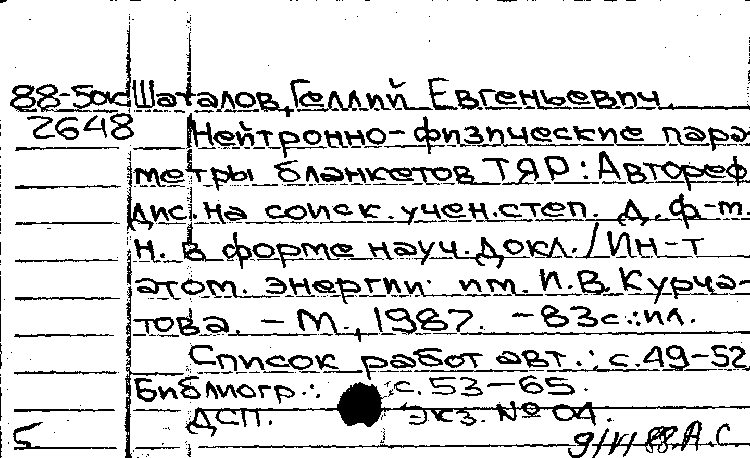 88-5окд Шаталов, Геллий Евгеньевич.
2648 Нейтронно-физические пара-
метры бланкетов ТЯР: Автореф.
дис. на соиск. учен. степ. д. ф-м.
н. в форме науч. докл. / Ин-т
атом. энергии им. И.В. Курча-
това. - М., 1987. - 83с.: ил.
Список работ авт.: с. 49-52
Библиогр.: с. 53-65.
ДСП. Экз. № 04.
5 9/VI 88. А.С